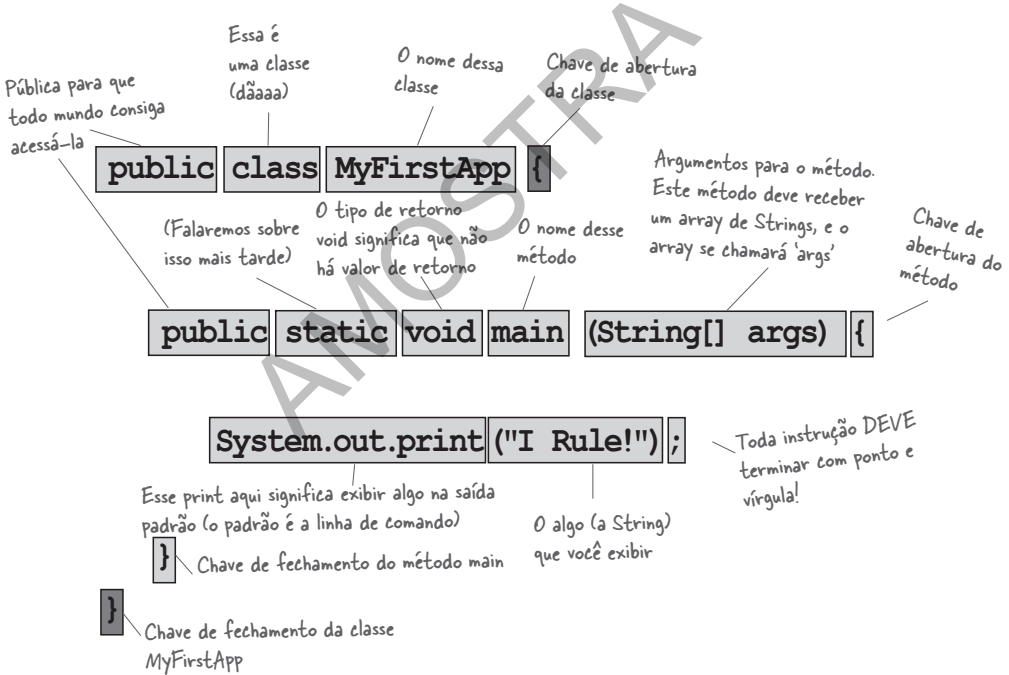 Pública para que
todo mundo consiga
acessá-la
Essa é
uma classe
(dãaaa)
O nome dessa
classe
Chave de abertura
da classe
public class MyFirstApp {
(Falaremos sobre
isso mais tarde)
O tipo de retorno
void significa que não
há valor de retorno
O nome desse
método
Argumentos para o método.
Este método deve receber
um array de Strings, e o
array se chamará 'args'
Chave de
abertura do
método
public static void main (String[] args) {
System.out.print("I Rule!");
Toda instrução DEVE
terminar com ponto e
vírgula!
Esse print aqui significa exibir algo na saída
padrão (o padrão é a linha de comando)
O algo (a String)
que você exibir
}
Chave de fechamento do método main
}
Chave de fechamento da classe
MyFirstApp
AMOSTRA